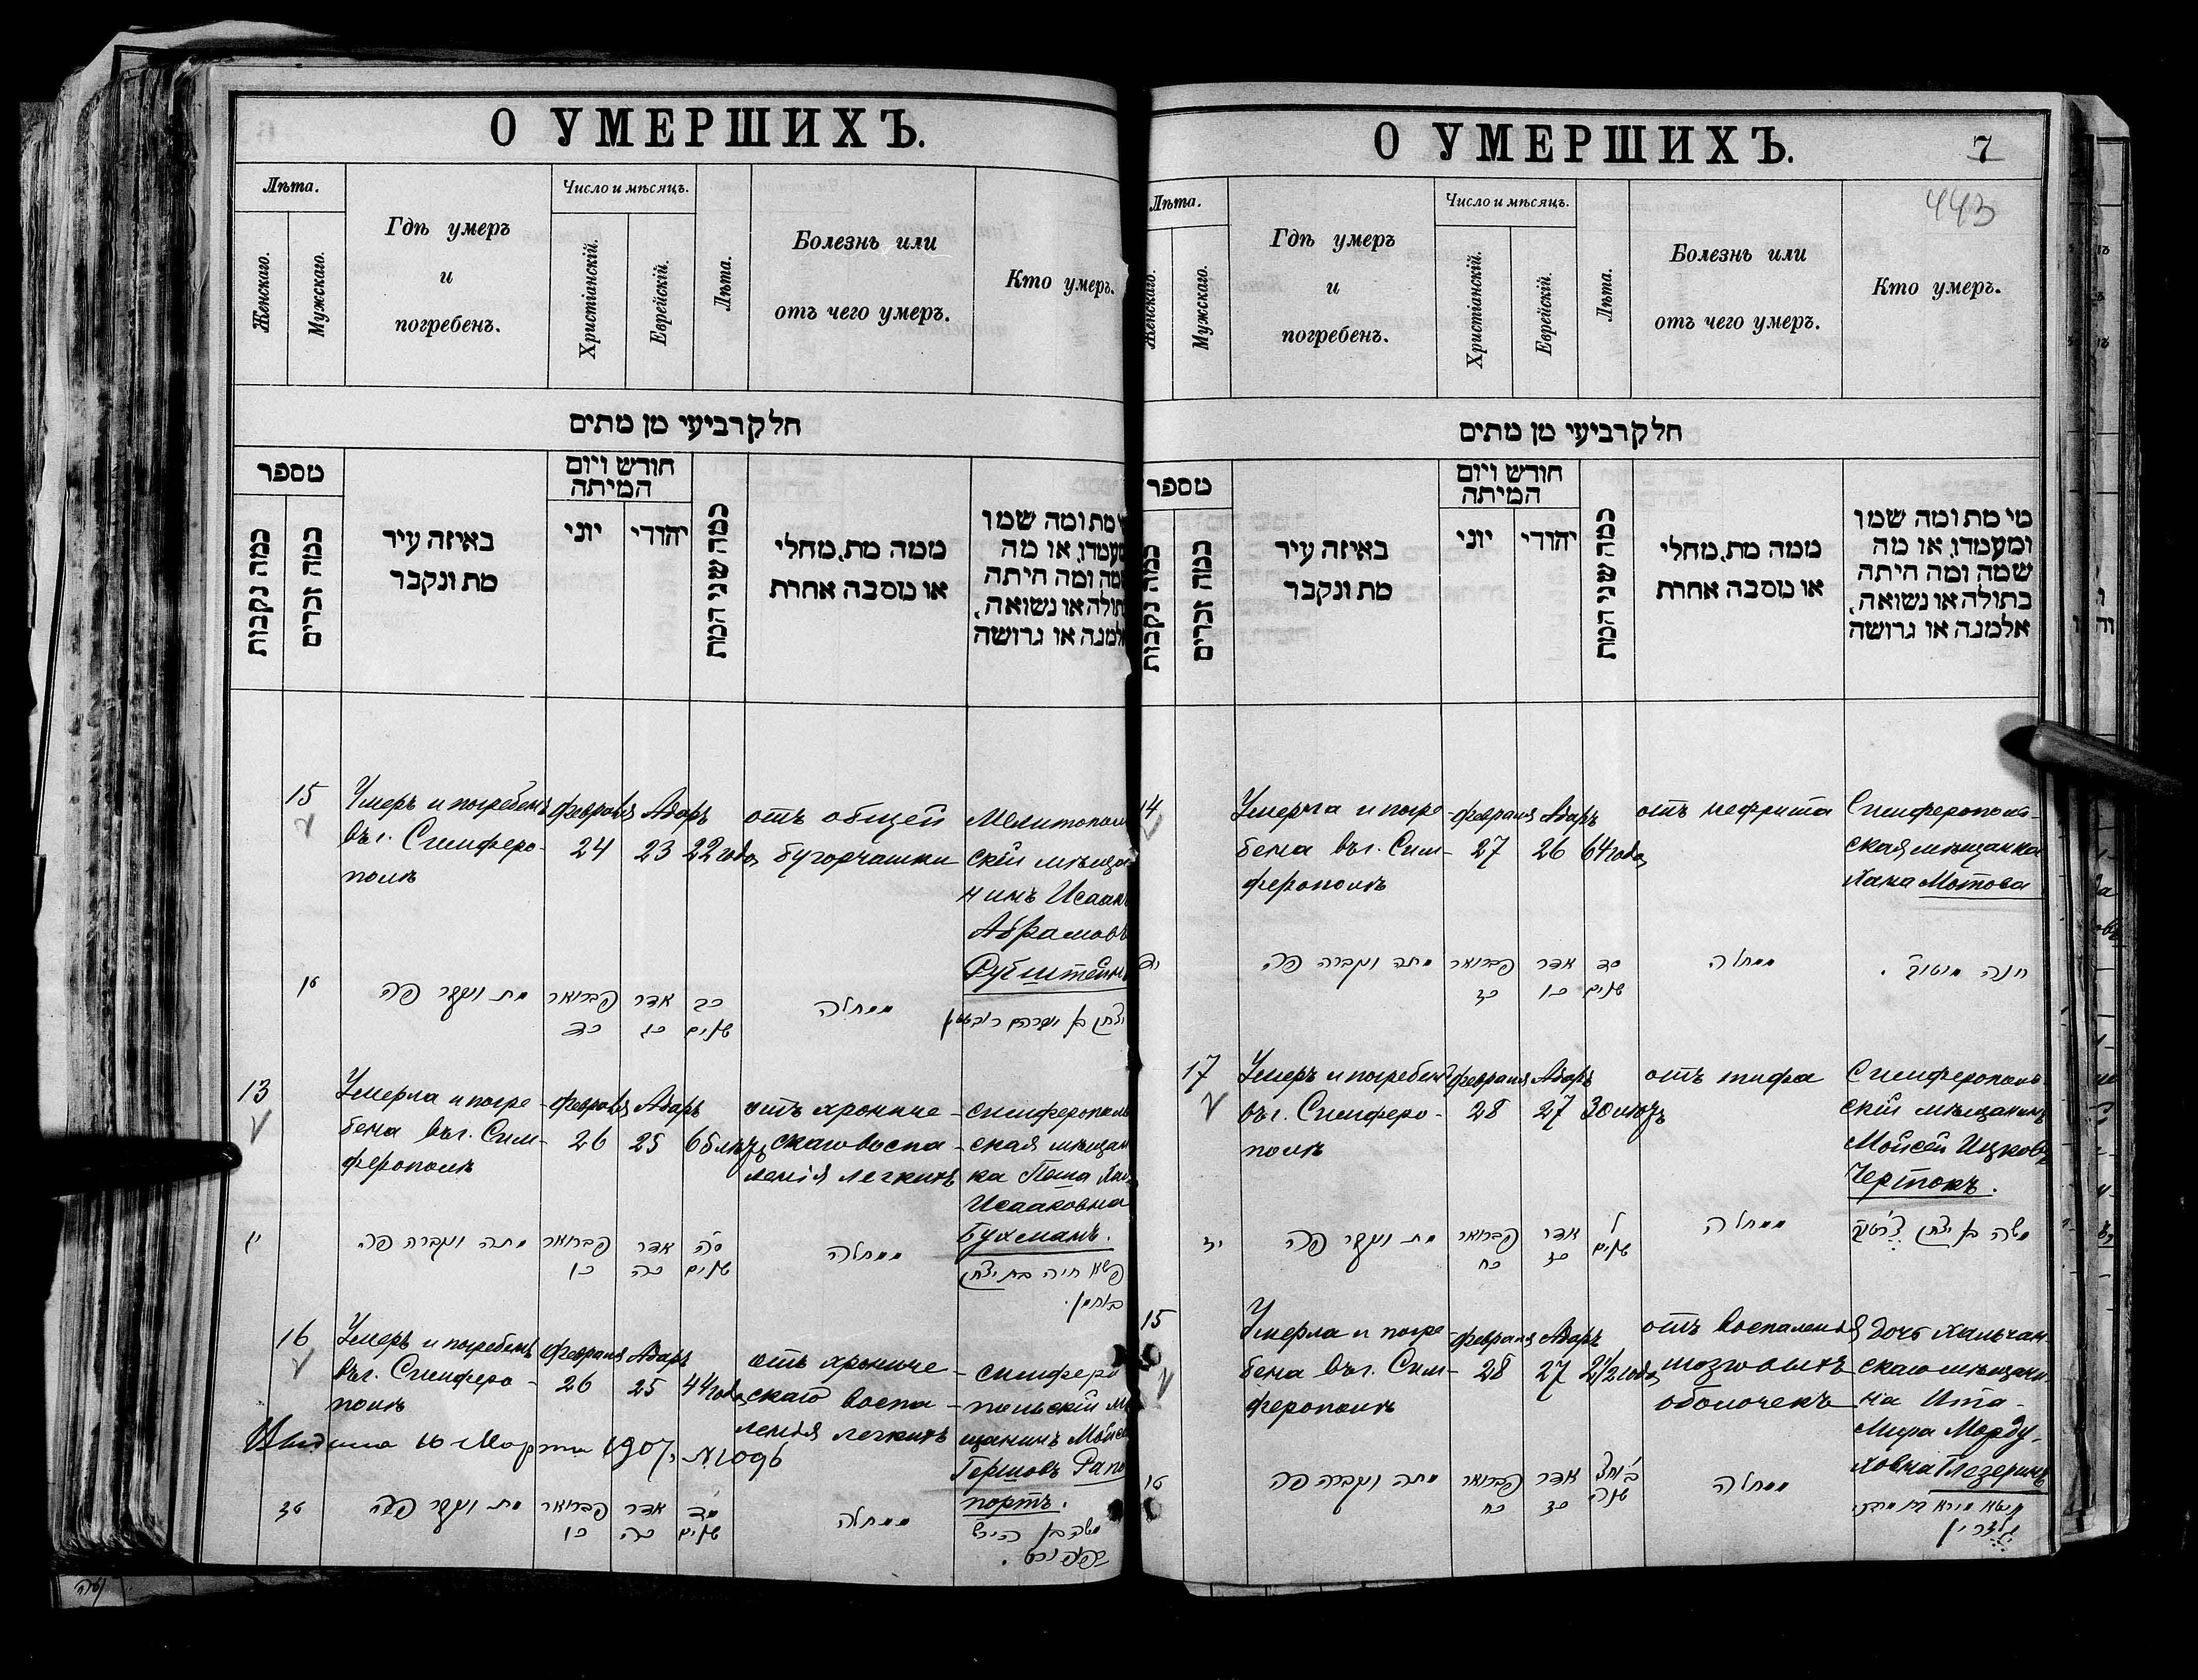 О УМЕРШИХЪ.
Лѣта.
Женскаго.
Мужскаго.
Гдѣ умеръ
и
погребенъ.
Число и мѣсяцъ.
Христіанскій.
Еврейскій.
Лѣта.
Болезнь или
отъ чего умеръ.
Кто умеръ.
חלק רביעי מן מתים
מספר
כמה נקבות
כמה זכרים
באיזה עיר
מת ונקבר
חודש ויום
המיתה
יוני
יהודי
כמה שני המת
ממה מת, מחלי
או מסבה אחרת
מת ומה שמו
ומעמדו, או מה
שמה ומה היתה
בתולה או נשואה,
אלמנה או גרושה
15
Умеръ и погребенъ
въ г. Симферо-
полѣ
февраля
24
Адаръ
23
22 года
отъ общей
бугорчатки
Мелитополь
скій мѣща
нинъ Исаакъ
Абрамовъ
Рубштейнъ
טו
מת ונקבר פה
פברואר
כד
אדר
כג
כב
שנים
ממחלה
יצחק בן אברהם
13
Умерла и погре-
бена въ г. Сим-
ферополѣ
февраля
26
Адаръ
25
65 лѣтъ
отъ хрониче-
скаго воспа-
ленія легкихъ
симферополь
ская мѣщан
ка Пеша Хая
Исааковна
Бухманъ.
יג
מתה ונקברה פה
פברואר
כו
אדר
כה
סה
שנים
ממחלה
פשא חיה בת יצחק
בוחמן.
16
Умеръ и погребенъ
въ г. Симферо-
полѣ
февраля
26
Адаръ
25
44 года
отъ хрониче-
скаго воспа-
ленія легкихъ
симферо
польскій мѣ
щанинъ Мойсей
Гершовъ Рапо
портъ.
Выдана 16 Марта 1907 г. №1096
טז
מת ונקבר פה
פברואר
כו
אדר
כה
מד
שנים
ממחלה
משה בן הירש
О УМЕРШИХЪ.
7
443
Лѣта.
Женскаго.
Мужскаго.
Гдѣ умеръ
и
погребенъ.
Число и мѣсяцъ.
Христіанскій.
Еврейскій.
Лѣта.
Болезнь или
отъ чего умеръ.
Кто умеръ.
חלק רביעי מן מתים
מספר
כמה נקבות
כמה זכרים
באיזה עיר
מת ונקבר
חודש ויום
המיתה
יוני
יהודי
כמה שני המת
ממה מת, מחלי
או מסבה אחרת
מי מת ומה שמו
ומעמדו, או מה
שמה ומה היתה
בתולה או נשואה,
אלמנה או גרושה
14
Умерла и погре-
бена въ г. Сим-
ферополѣ
февраля
27
Адаръ
26
64 года
отъ нефрита
Симферополь-
ская мѣщанка
Хана Мотова
יד
מתה ונקברה פה
פברואר
כז
אדר
כו
סד
שנים
ממחלה
חנה
17
Умеръ и погребенъ
въ г. Симферо-
полѣ
февраля
28
Адаръ
27
30 лѣтъ
отъ тифа
Симферополь-
скій мѣщанинъ
Мойсей Ицковъ
Чертокъ.
יז
מת ונקבר פה
פברואר
כח
אדר
כז
ל
שנים
ממחלה
משה בן יצחק
15
Умерла и погре-
бена въ г. Сим-
ферополѣ
февраля
28
Адаръ
27
2 1/2 года
отъ воспаленія
мозговыхъ
оболочекъ
дочь
скаго мѣщани-
на Ита-
Мира Морду-
ховна Глезеринъ
טו
מתה ונקברה פה
פברואר
כח
אדר
כז
שנה
ממחלה